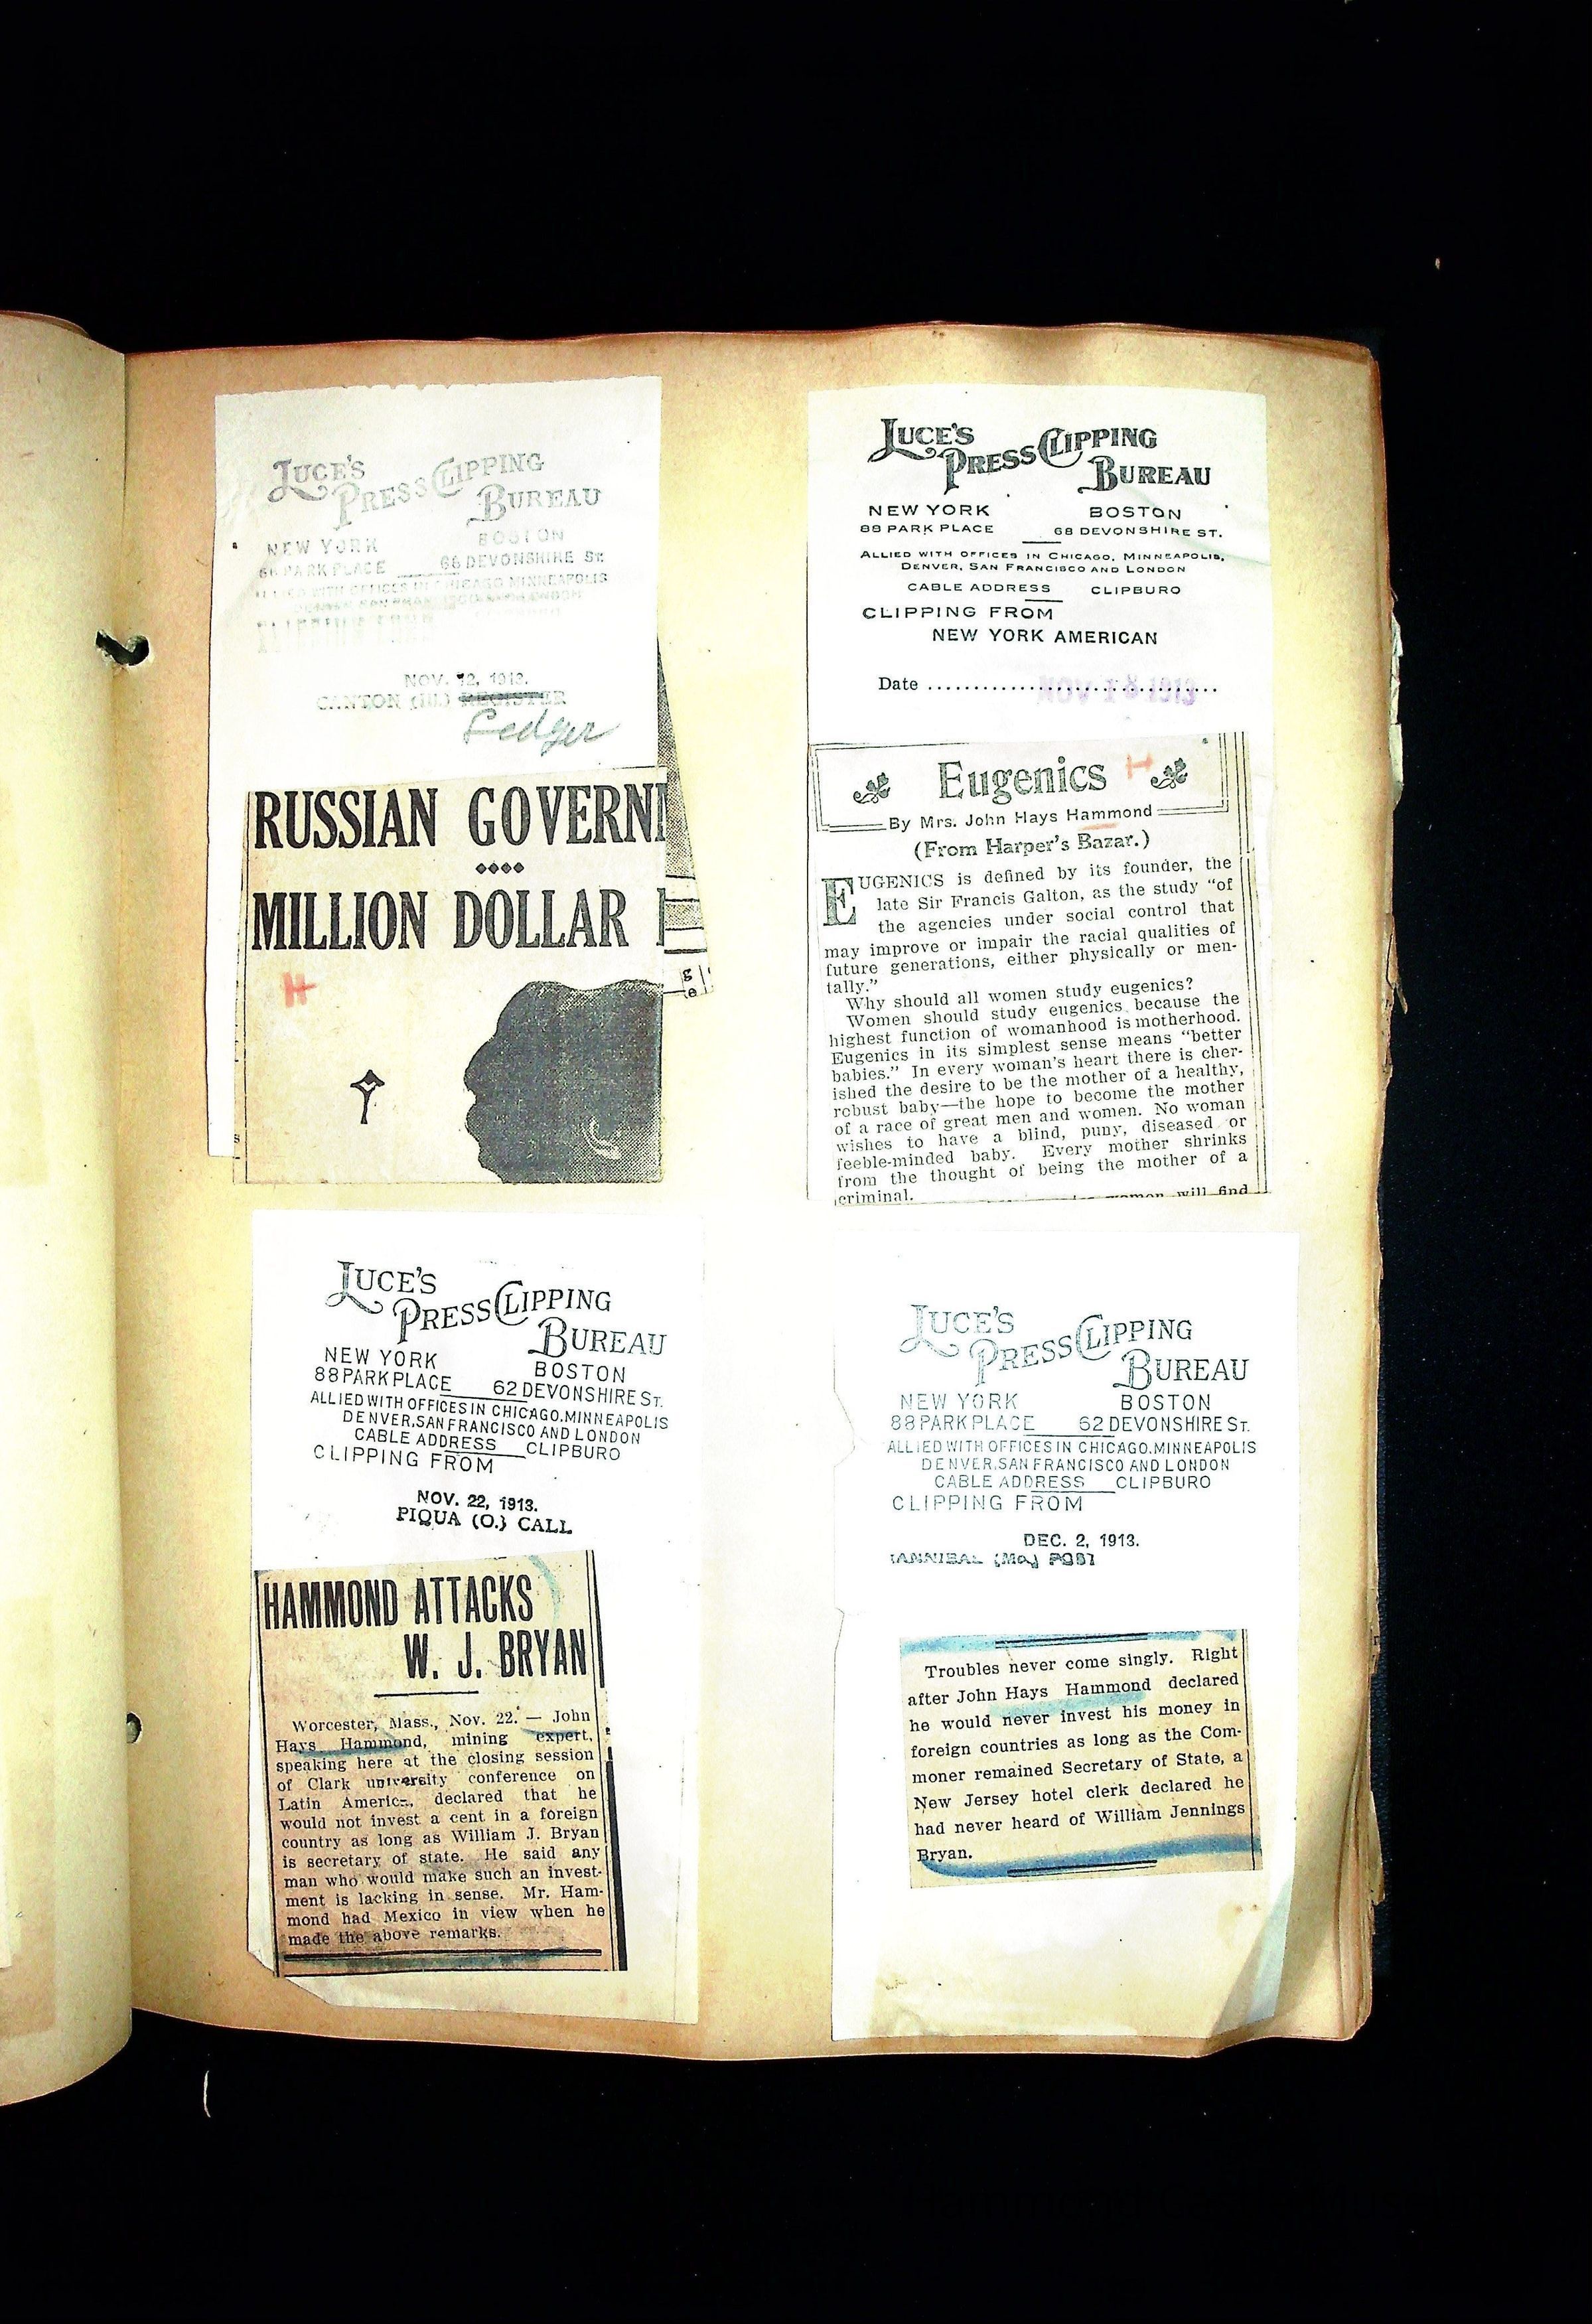 LUCE'S
PRESS CLIPPING
BUREAU
NEW YORK BOSTON
PARK PLACE 68 DEVONSHIRE ST.
ALLIED WITH OFFICES IN CHICAGO MINNEAPOLIS
NOV. 12, 1913.
CANTON (Ill.) REGISTER
Ledger
RUSSIAN GOVERN
MILLION DOLLAR
H
g
e
s
LUCE'S
PRESS CLIPPING
BUREAU
NEW YORK BOSTON
88 PARK PLACE 68 DEVONSHIRE ST.
ALLIED WITH OFFICES IN CHICAGO, MINNEAPOLIS,
DENVER, SAN FRANCISCO AND LONDON
CABLE ADDRESS CLIPBURO
CLIPPING FROM
NEW YORK AMERICAN
Date NOV 18 1913
Eugenics H
By Mrs. John Hays Hammond
(From Harper's Bazar.)
EUGENICS is defined by its founder, the
late Sir Francis Galton, as the study "of
the agencies under social control that
may improve or impair the racial qualities of
future generations, either physically or men-
tally."
Why should all women study eugenics?
Women should study eugenics because the
highest function of womanhood is motherhood.
Eugenics in its simplest sense means "better
babies." In every woman's heart there is cher-
ished the desire to be the mother of a healthy,
robust baby—the hope to become the mother
of a race of great men and women. No woman
wishes to have a blind, puny, diseased or
feeble-minded baby. Every mother shrinks
from the thought of being the mother of a
criminal.
women will find
LUCE'S
PRESS CLIPPING
BUREAU
NEW YORK BOSTON
88 PARK PLACE 62 DEVONSHIRE ST.
ALLIED WITH OFFICES IN CHICAGO, MINNEAPOLIS
DENVER, SAN FRANCISCO AND LONDON
CABLE ADDRESS CLIPBURO
CLIPPING FROM
NOV. 22, 1913.
PIQUA (O.) CALL
HAMMOND ATTACKS
W. J. BRYAN
Worcester, Mass., Nov. 22. — John
Hays Hammond, mining expert,
speaking here at the closing session
of Clark university conference on
Latin America, declared that he
would not invest a cent in a foreign
country as long as William J. Bryan
is secretary of state. He said any
man who would make such an invest-
ment is lacking in sense. Mr. Ham-
mond had Mexico in view when he
made the above remarks.
LUCE'S
PRESS CLIPPING
BUREAU
NEW YORK BOSTON
88 PARK PLACE 62 DEVONSHIRE ST.
ALLIED WITH OFFICES IN CHICAGO, MINNEAPOLIS
DENVER, SAN FRANCISCO AND LONDON
CABLE ADDRESS CLIPBURO
CLIPPING FROM
DEC. 2, 1913.
HANNIBAL (Mo.) POST
Troubles never come singly. Right
after John Hays Hammond declared
he would never invest his money in
foreign countries as long as the Com-
moner remained Secretary of State, a
New Jersey hotel clerk declared he
had never heard of William Jennings
Bryan.